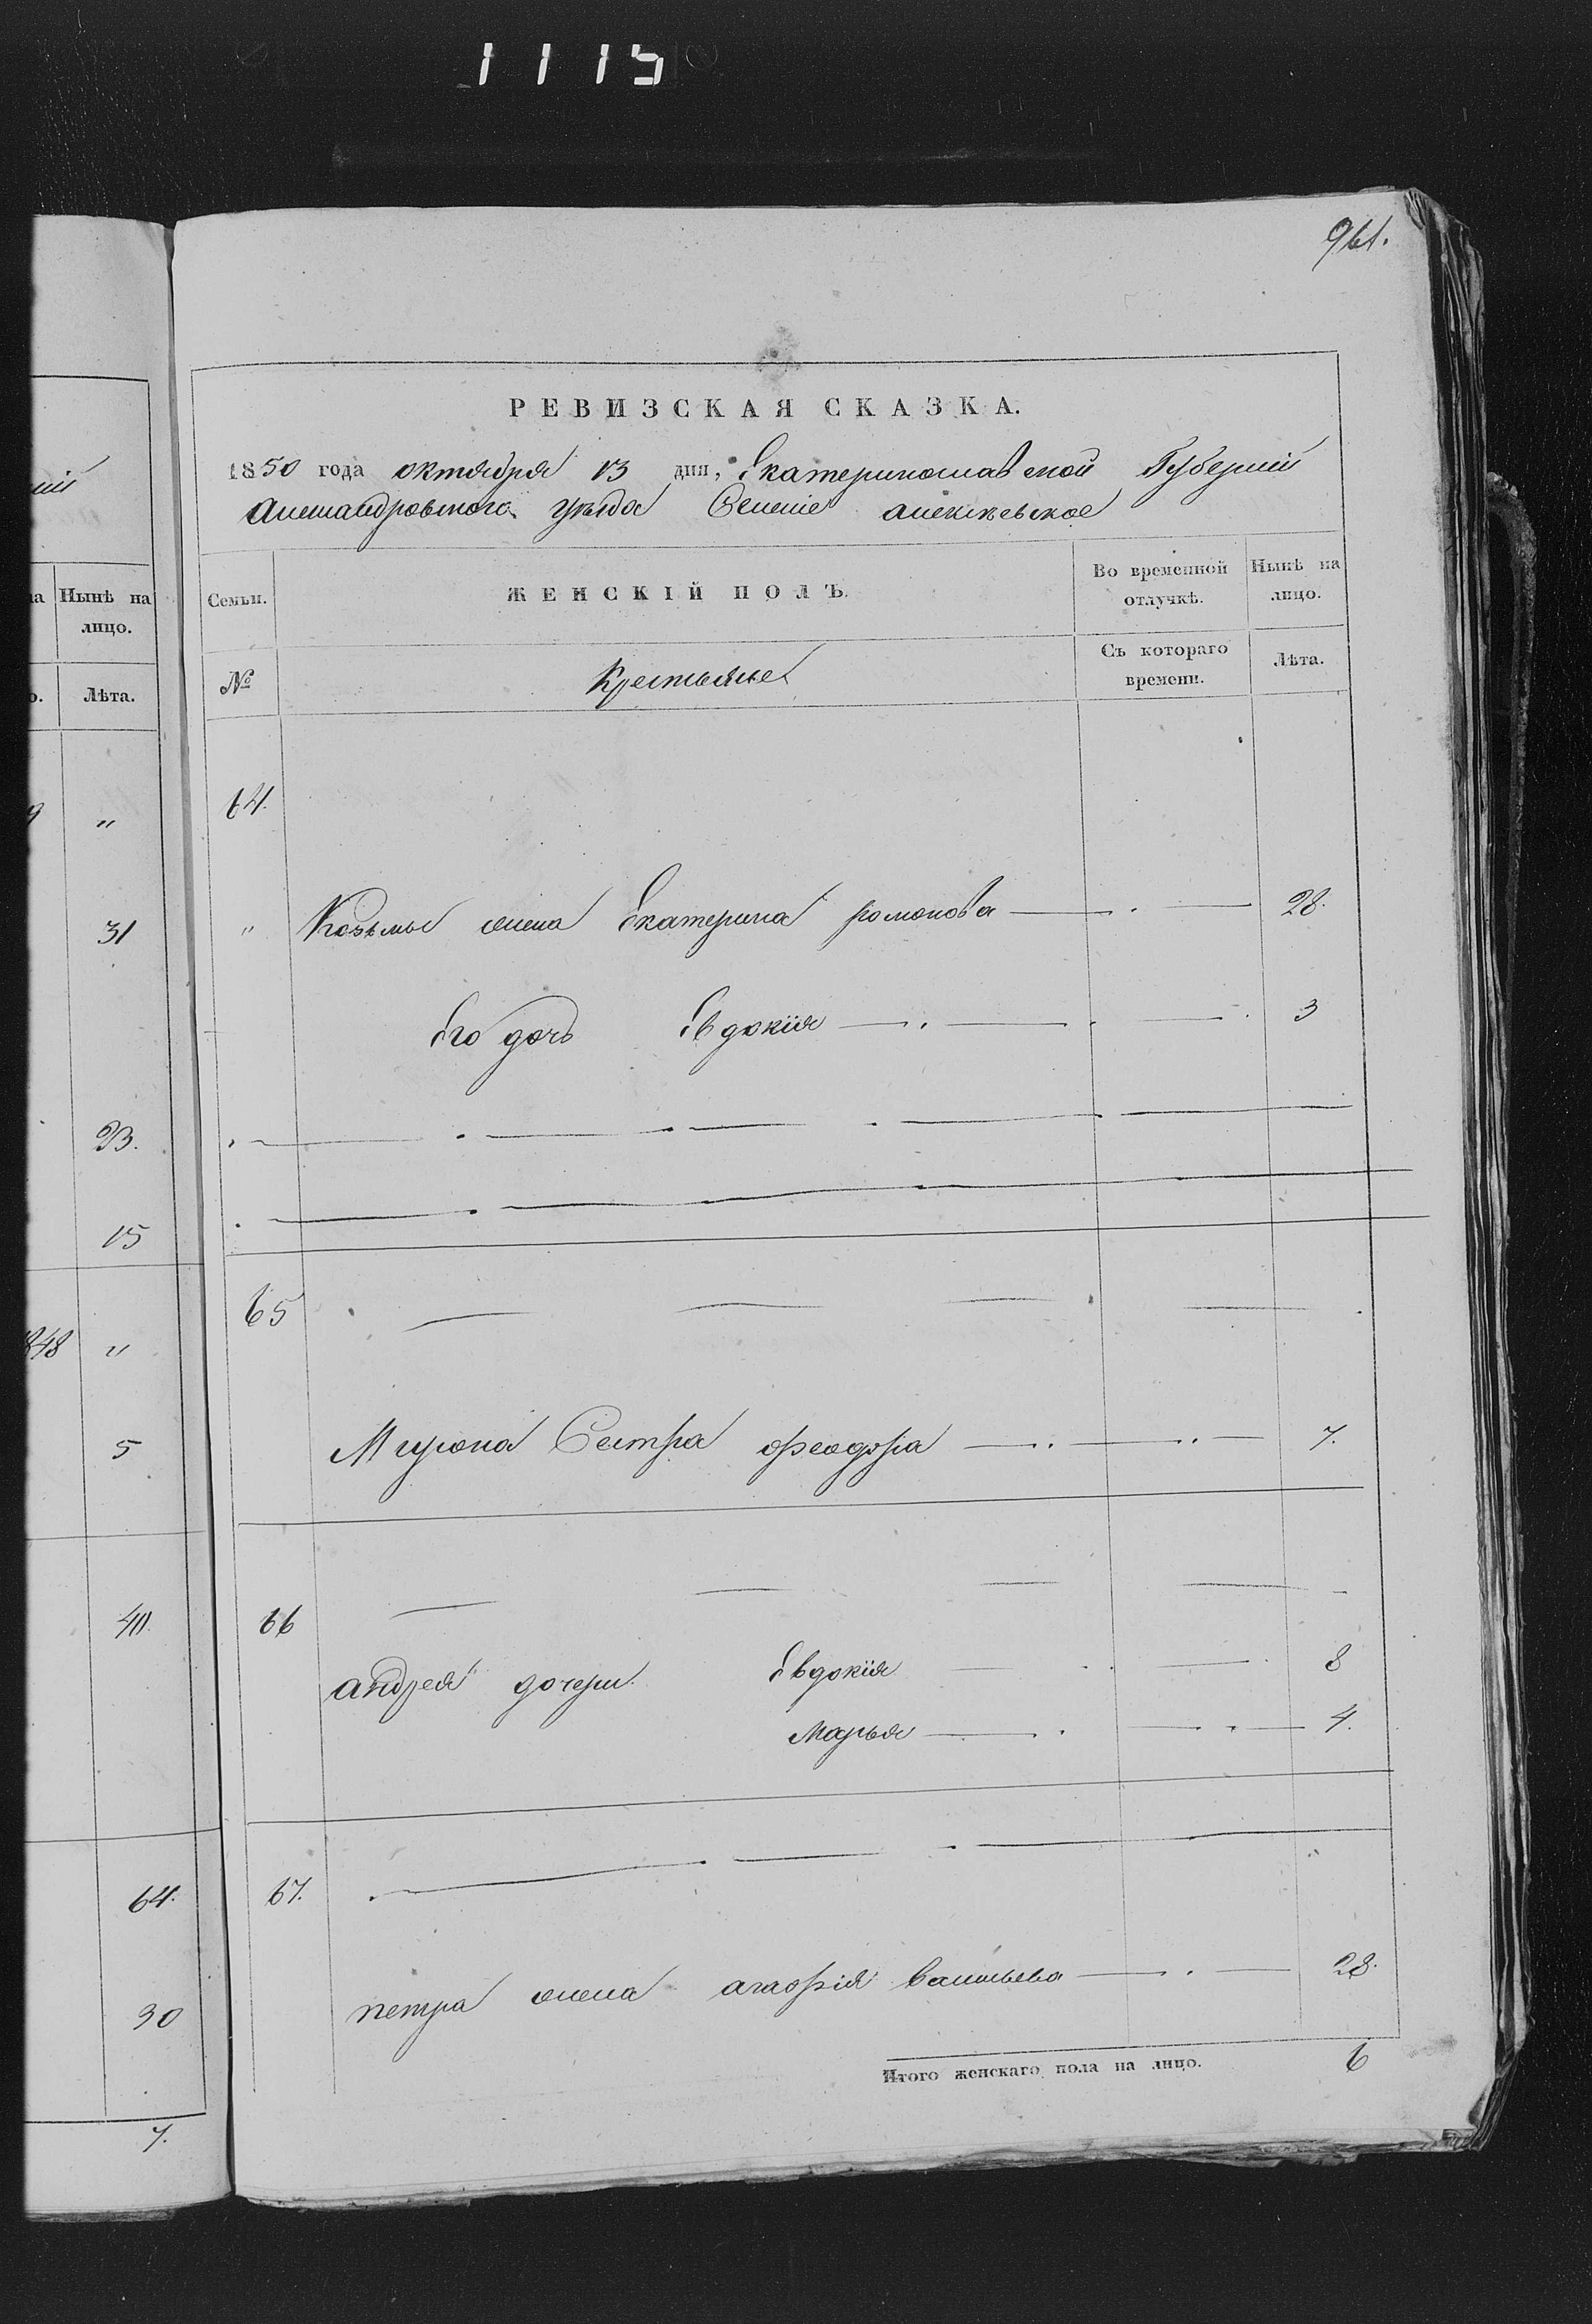 1115
961.
РЕВИЗСКАЯ СКАЗКА.
1850 года октября 13 дня, Екатеринославской Губерніи
Александровского уезда Селеніе алексѣевское
Семьи. ЖЕНСКІЙ ПОЛЪ. Во временной отлучкѣ. Нынѣ на лицо.
№ Крестьяне Съ котораго времени. Лѣта.
64.
" Козьмы жена Екатерина романова 28.
Его дочь Евдокія 3
65
Мирона Сестра феодора 7.
66
андрея дочери Евдокія 8
Марья 4.
67.
петра жена агафія васильева 28.
Итого женскаго пола на лицо. 6
Нынѣ на
лицо.
Лѣта.
"
31
23.
15
848 "
5
40.
64.
30
7.